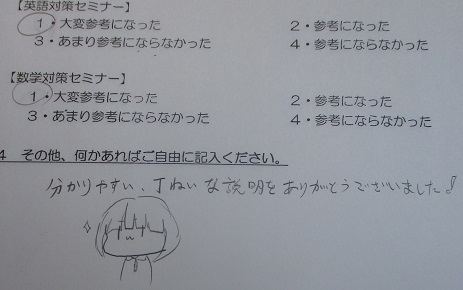 【英語対策セミナー】
1・大変参考になった 2・参考になった
3・あまり参考にならなかった 4・参考にならなかった
【数学対策セミナー】
1・大変参考になった 2・参考になった
3・あまり参考にならなかった 4・参考にならなかった
4 その他、何かあればご自由に記入ください。
分かりやすい、丁ねいな説明をありがとうございました!